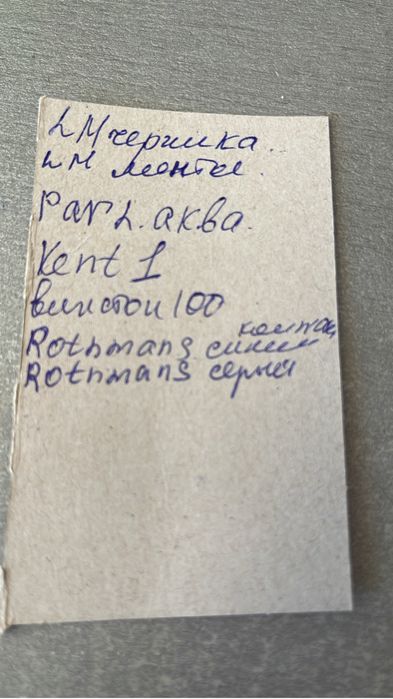 LM черника
LM ментол
Parl. аква.
Kent 1
винстон 100
Rothmans синий компакт
Rothmans серый